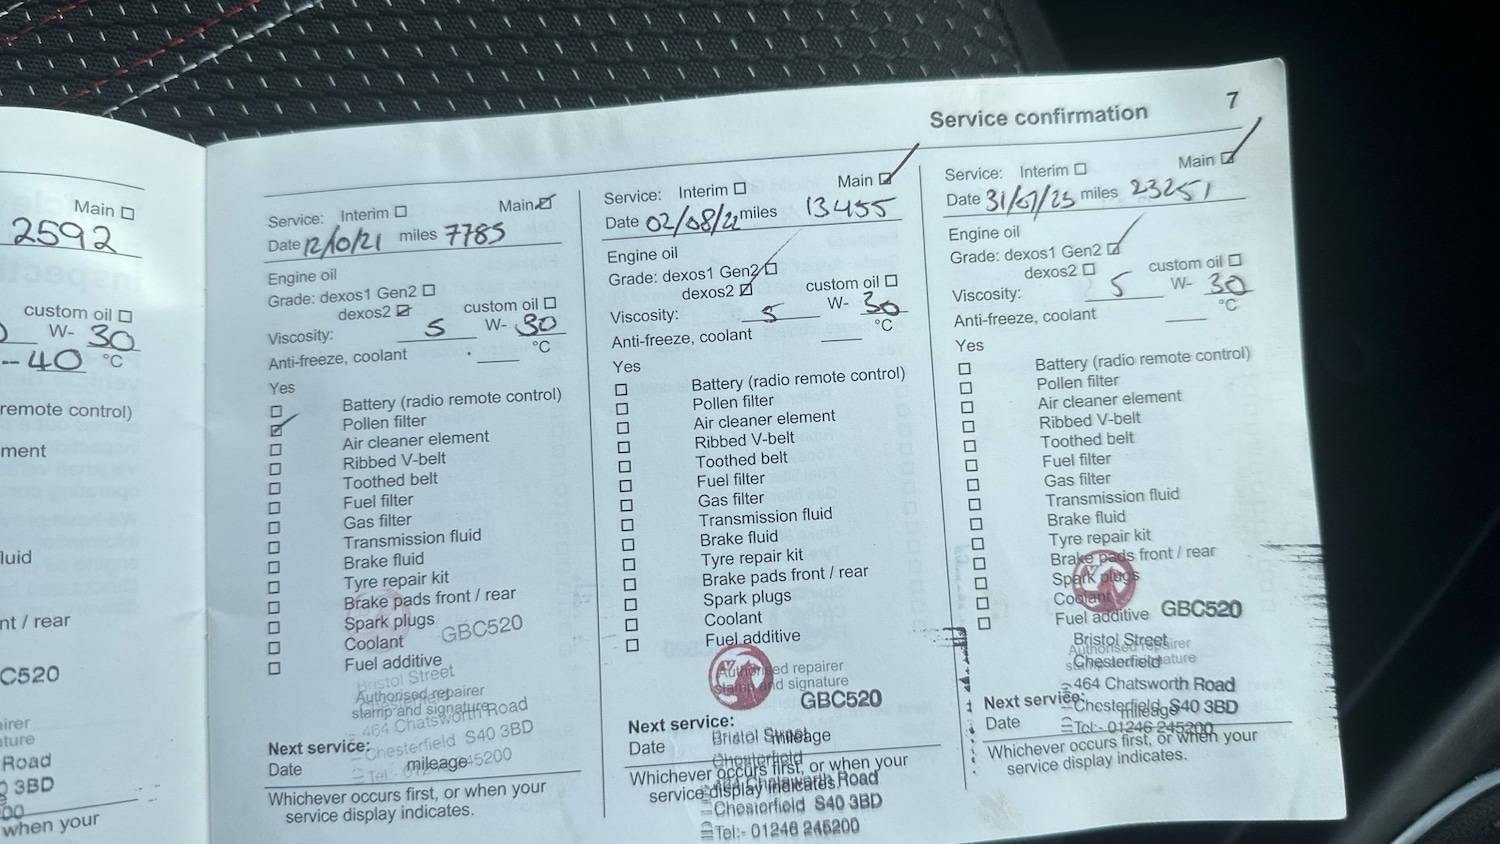 Main
2592
custom oil
W- 30
-- 40 °C
remote control)
ment
luid
nt / rear
C520
irer
ture
Road
3BD
00
when your
Service confirmation 7
Service: Interim Main
Date 12/10/21 miles 7785
Engine oil
Grade: dexos1 Gen2
dexos2 custom oil
Viscosity: 5 W- 30
Anti-freeze, coolant °C
Yes
Battery (radio remote control)
Pollen filter
Air cleaner element
Ribbed V-belt
Toothed belt
Fuel filter
Gas filter
Transmission fluid
Brake fluid
Tyre repair kit
Brake pads front / rear
Spark plugs
Coolant
Fuel additive
GBC520
Bristol Street
Authorised repairer
stamp and signature
464 Chatsworth Road
Chesterfield S40 3BD
Next service:
Date mileage
Tel:- 01246 245200
Whichever occurs first, or when your
service display indicates.
Service: Interim Main
Date 02/08/22 miles 13455
Engine oil
Grade: dexos1 Gen2
dexos2 custom oil
Viscosity: 5 W- 30
Anti-freeze, coolant °C
Yes
Battery (radio remote control)
Pollen filter
Air cleaner element
Ribbed V-belt
Toothed belt
Fuel filter
Gas filter
Transmission fluid
Brake fluid
Tyre repair kit
Brake pads front / rear
Spark plugs
Coolant
Fuel additive
Authorised repairer
stamp and signature
GBC520
Next service:
Date mileage
Bristol Street
Chesterfield
Whichever occurs first, or when your
service display indicates.
464 Chatsworth Road
Chesterfield S40 3BD
Tel:- 01246 245200
Service: Interim Main
Date 31/07/23 miles 23251
Engine oil
Grade: dexos1 Gen2
dexos2 custom oil
Viscosity: 5 W- 30
Anti-freeze, coolant °C
Yes
Battery (radio remote control)
Pollen filter
Air cleaner element
Ribbed V-belt
Toothed belt
Fuel filter
Gas filter
Transmission fluid
Brake fluid
Tyre repair kit
Brake pads front / rear
Spark plugs
Coolant
Fuel additive
GBC520
Bristol Street
Authorised repairer
Chesterfield
stamp and signature
464 Chatsworth Road
Next service:
Chesterfield S40 3BD
Date mileage
Tel:- 01246 245200
Whichever occurs first, or when your
service display indicates.